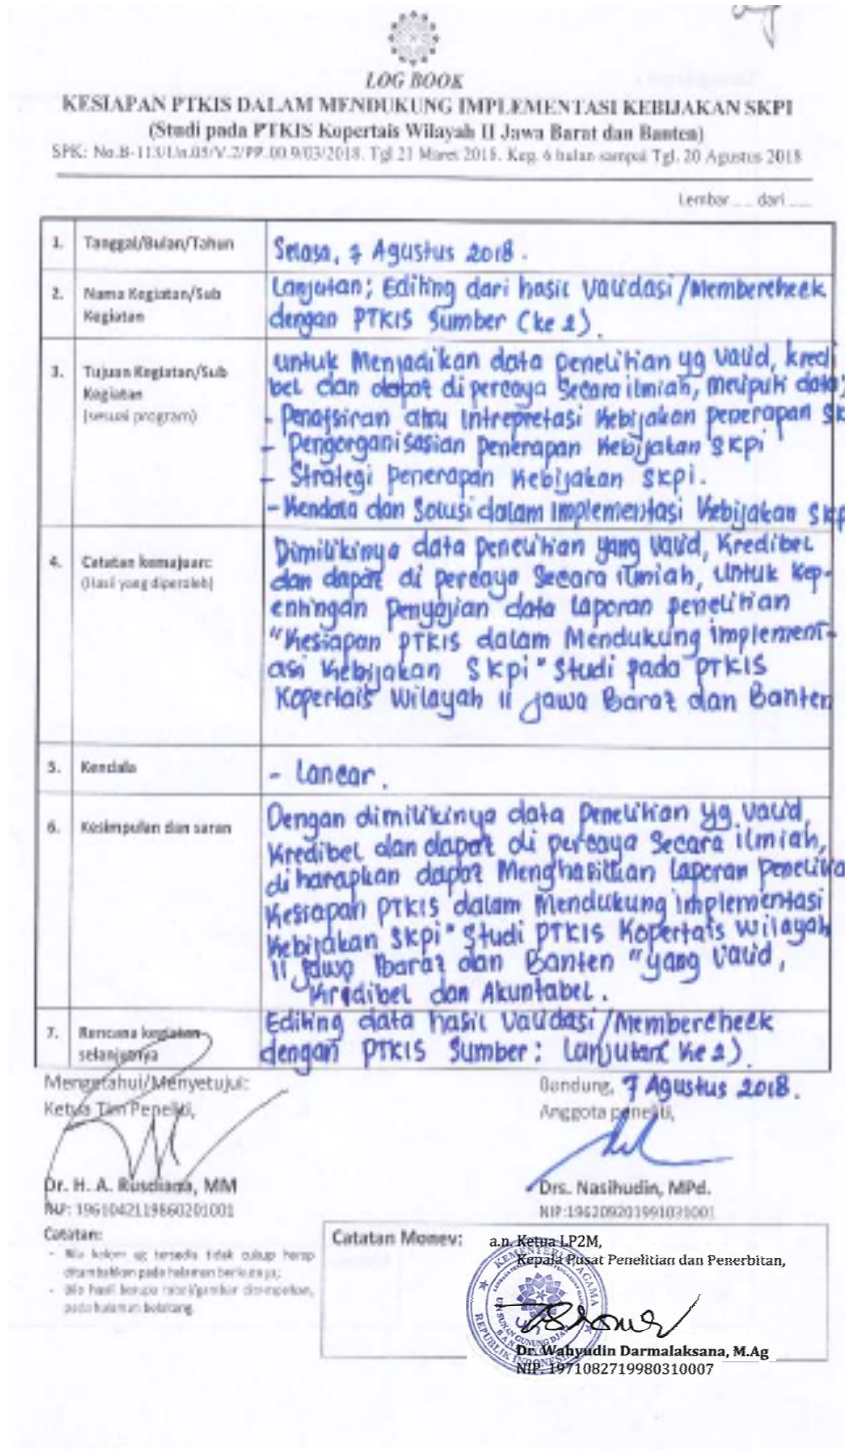 LOG BOOK
KESIAPAN PTKIS DALAM MENDUKUNG IMPLEMENTASI KEBIJAKAN SKPI
(Studi pada PTKIS Kopertais Wilayah II Jawa Barat dan Banten)
SPK: No.B-113/Un.05/V.2/PP.00.9/03/2018. Tgl 21 Maret 2018. Keg. 6 bulan sampai Tgl. 20 Agustus 2018
Lembar ... dari ...
1. Tanggal/Bulan/Tahun
Selasa, 7 Agustus 2018.
2. Nama Kegiatan/Sub
Kegiatan
Lanjutan; Editing dari hasil Validasi/Membercheek
dengan PTKIS Sumber (ke 2).
3. Tujuan Kegiatan/Sub
Kegiatan
(sesuai program)
untuk Menjadikan data penelitian yg valid, kredi
bel dan dapat di percaya Secara ilmiah, meliputi data;
- Penafsiran atau Intrepretasi Kebijakan penerapan SK
- Pengorganisasian penerapan Kebijakan SKpi
- Strategi penerapan Kebijakan SKpi.
- Kendala dan Solusi dalam Implementasi Kebijakan SKp
4. Catatan kemajuan:
(Hasil yang diperoleh)
Dimilikinya data penelitian yang valid, Kredibel
dan dapat di percaya Secara ilmiah, untuk Kep-
entingan Penyajian data laporan penelitian
"Kesiapan PTKIS dalam Mendukung implement-
asi Kebijakan SKpi" Studi pada PTKIS
Kopertais Wilayah II Jawa Barat dan Banten
5. Kendala
- Lancar.
6. Kesimpulan dan saran
Dengan dimilikinya data penelitian yg valid,
Kredibel dan dapat di percaya Secara ilmiah,
di harapkan dapat Menghasilkan laporan penelitia
Kesiapan PTKIS dalam Mendukung implementasi
Kebijakan SKpi" Studi PTKIS Kopertais Wilayah
II Jawa Barat dan Banten "yang Valid,
Kredibel dan Akuntabel.
7. Rencana kegiatan
selanjutnya
Editing data hasil Validasi/Membercheek
dengan PTKIS Sumber: Lanjutan( Ke 2)
Mengetahui/Menyetujui:
Ketua Tim Peneliti,
Bandung, 7 Agustus 2018.
Anggota peneliti,
Dr. H. A. Rusdiana, MM
NIP: 196104211986021001
Drs. Nasihudin, MPd.
NIP:196209201991031001
Catatan:
- Bila kolom yg tersedia tidak cukup harap
ditambahkan pada halaman berikutnya;
- Bila hasil berupa tabel/gambar ditempelkan,
pada halaman belakang.
Catatan Monev:
a.n. Ketua LP2M,
Kepala Pusat Penelitian dan Penerbitan,
KEMENTERIAN AGAMA
UIN SUNAN GUNUNG DJATI
BANDUNG
REPUBLIK INDONESIA
Dr. Wahyudin Darmalaksana, M.Ag
NIP. 1971082719980310007